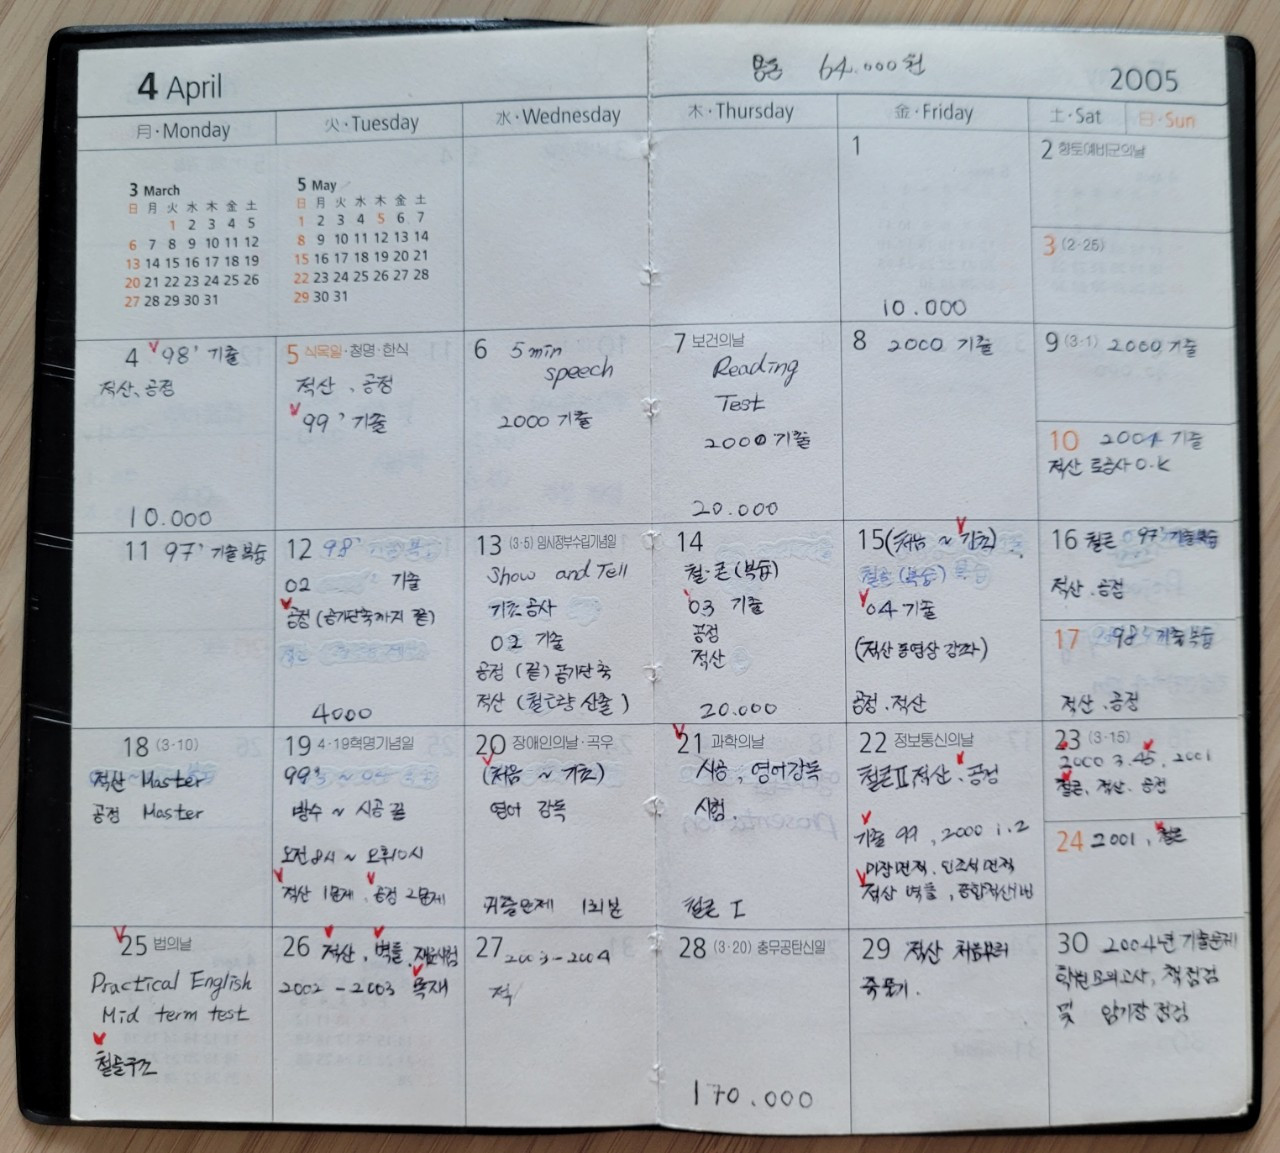 4 April
용돈 64.000원
2005
月·Monday
火·Tuesday
水·Wednesday
木·Thursday
金·Friday
土·Sat
日·Sun
3 March
日 月 火 水 木 金 土
1 2 3 4 5
6 7 8 9 10 11 12
13 14 15 16 17 18 19
20 21 22 23 24 25 26
27 28 29 30 31
5 May
日 月 火 水 木 金 土
1 2 3 4 5 6 7
8 9 10 11 12 13 14
15 16 17 18 19 20 21
22 23 24 25 26 27 28
29 30 31
1
10.000
2 향토예비군의날
3 (2·25)
4 98' 기출
적산, 공정
10.000
5 식목일·청명·한식
적산, 공정
99' 기출
6 5min
speech
2000 기출
7 보건의날
Reading
Test
2000 기출
20.000
8 2000 기출
9 (3·1) 2000 기출
10 2004 기출
적산 토공사 O.K
11 97' 기출복습
12 98'
02 기출
공정 (공기단축까지 끝)
4000
13 (3·5) 임시정부수립기념일
Show and Tell
기초공사
02 기출
공정 (끝) 공기단축
적산 (철근량 산출)
14
철·콘 (복습)
03 기출
공정
적산
20.000
15 (처음 ~ 기초)
철골 (복습)
04 기출
(적산 동영상 강좌)
공정.적산
16 철콘 97' 기출복습
적산.공정
17 98' 기출복습
적산.공정
18 (3·10)
적산 Master
공정 Master
19 4·19혁명기념일
99'
방수 ~ 시공 끝
오전 8시 ~ 오후10시
적산 1문제, 공정 2문제
20 장애인의날·곡우
(처음 ~ 기초)
영어 감독
기출문제 1회분
21 과학의날
시공, 영어감독
시험.
철콘 I
22 정보통신의날
철콘II, 적산, 공정
기출 99, 2000 1.2
미장면적, 인조석면적
적산 벽돌, 종합적산
23 (3·15)
2000 3.45, 2001
철콘, 적산. 공정
24 2001, 철콘
25 법의날
Practical English
Mid term test
철골구조
26 적산, 벽돌, 재료시험
2002 - 2003 목재
27 2003-2004
적
28 (3·20) 충무공탄신일
170.000
29 적산 처음부터
죽 풀기.
30 2004년 기출문제
학원모의고사, 책점검
및 암기장 점검